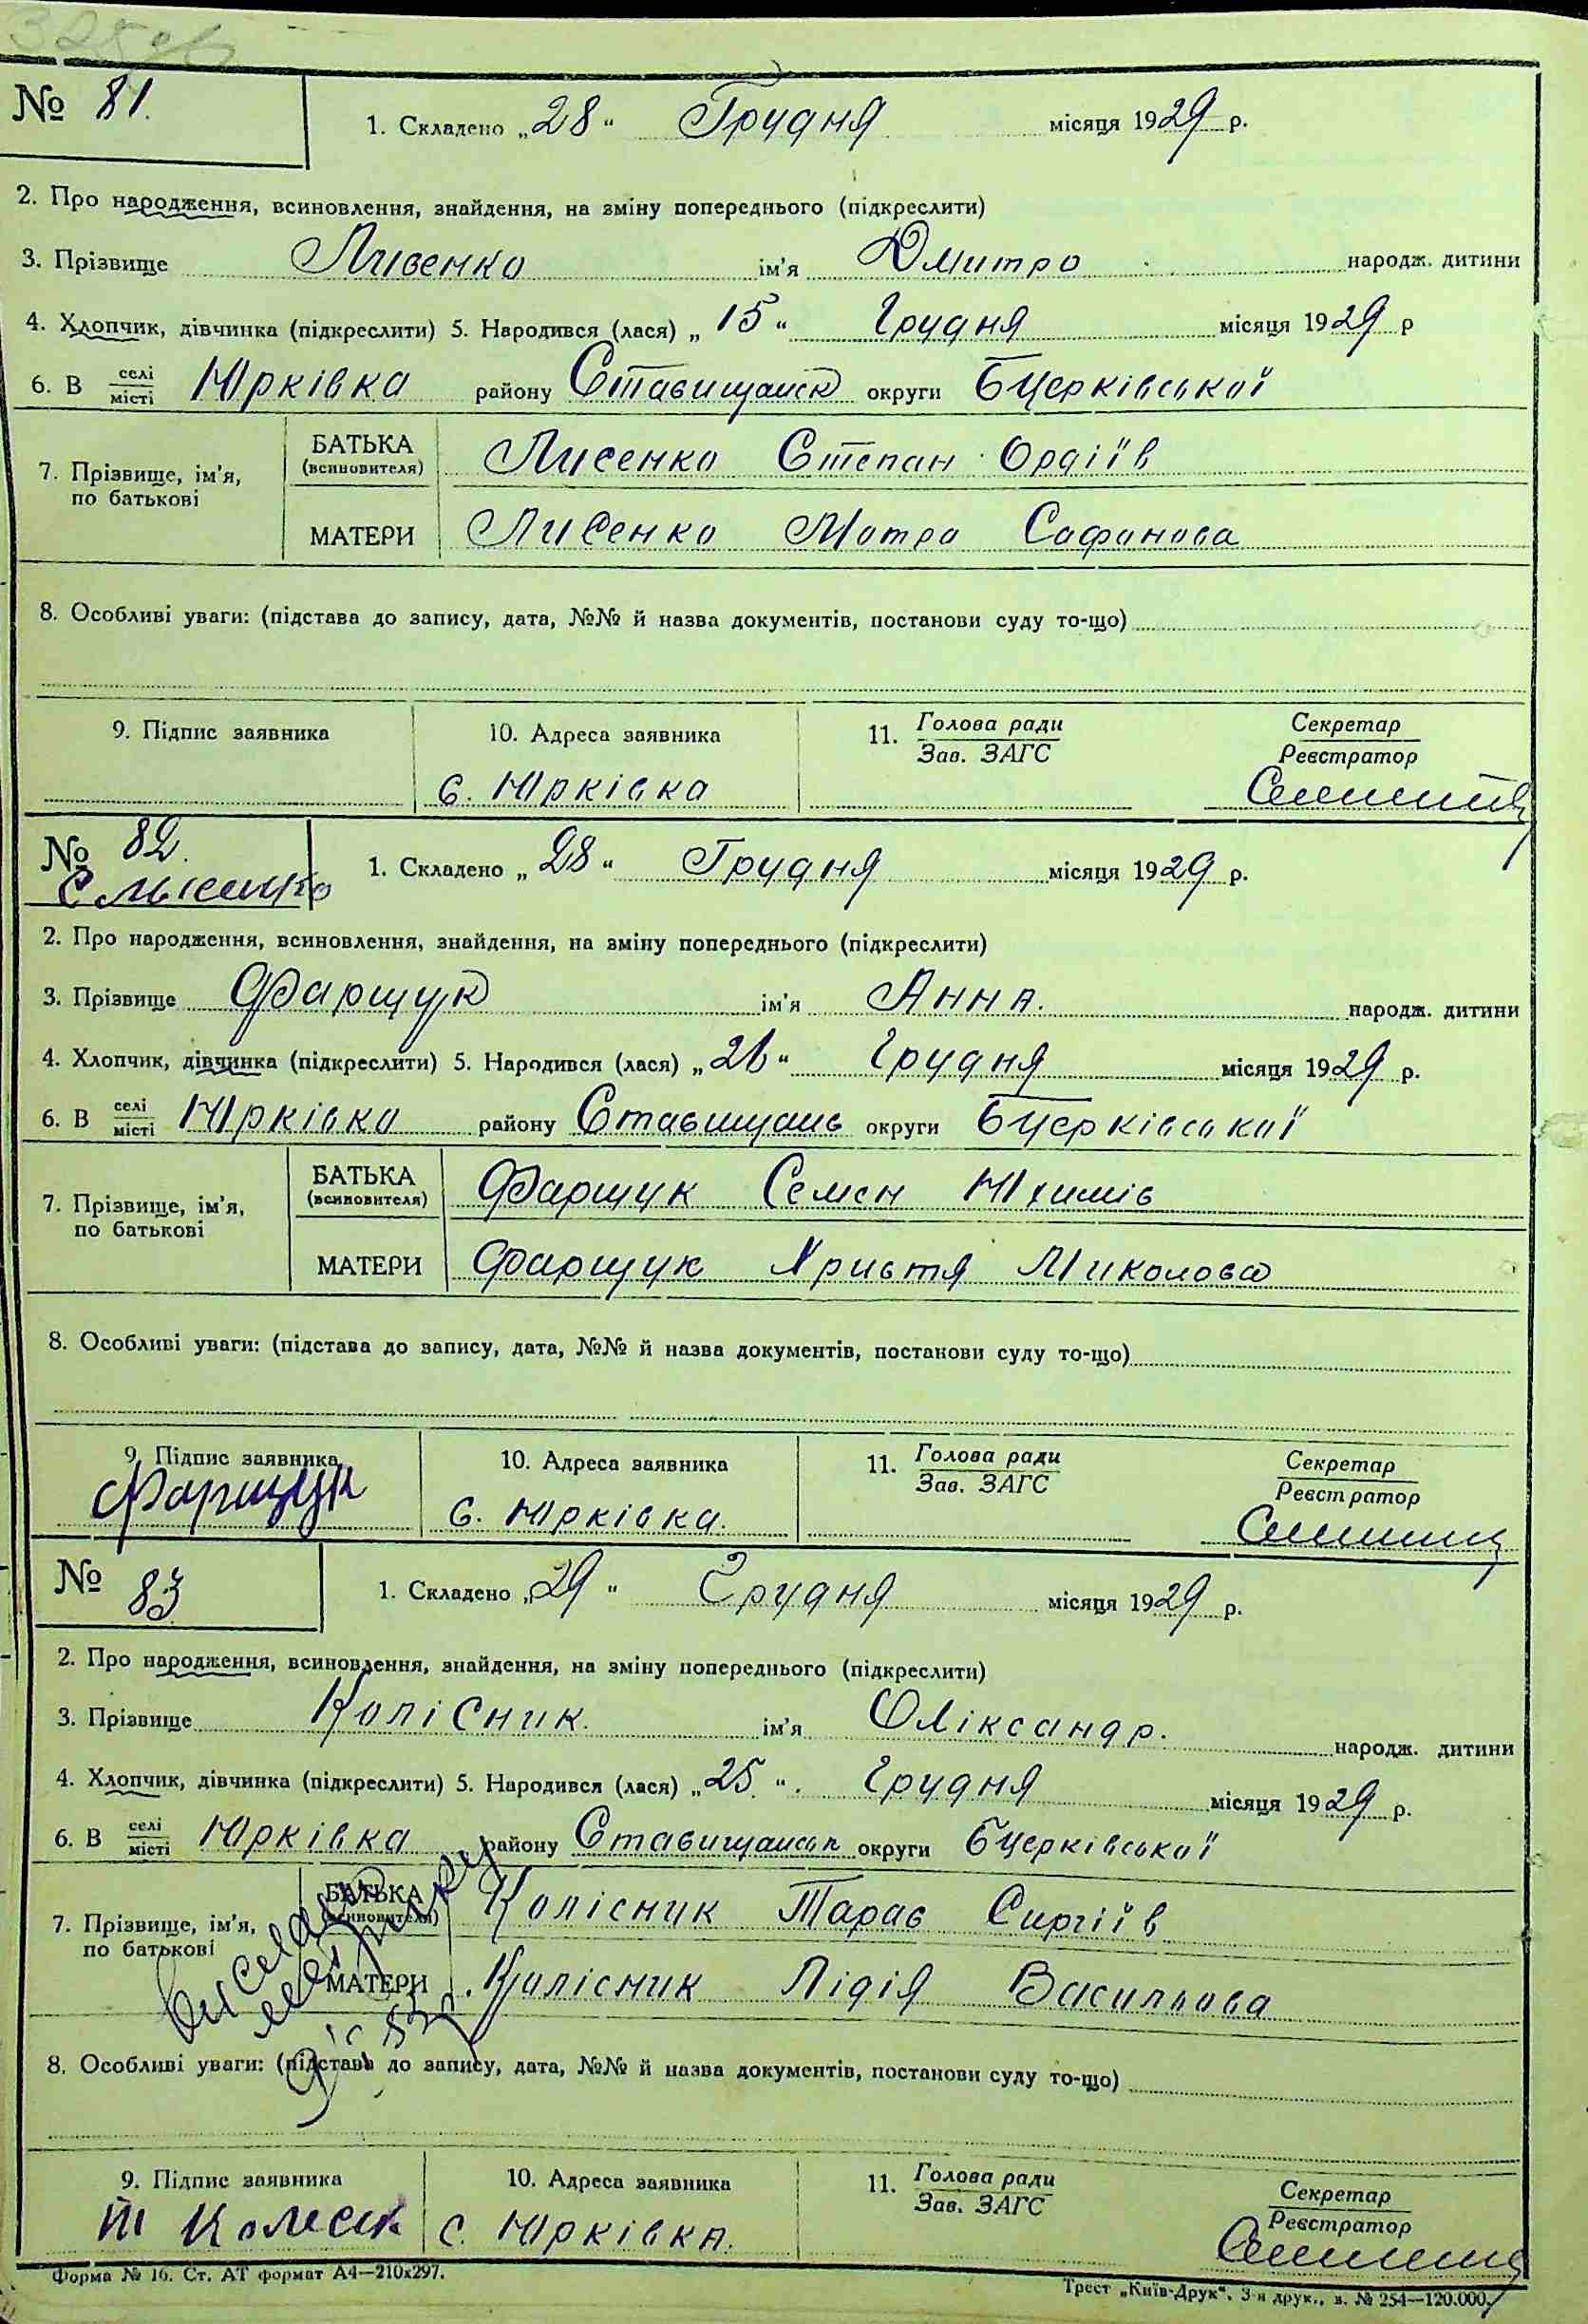 № 81.
1. Складено „28“ Грудня місяця 1929 р.
2. Про народження, всиновлення, знайдення, на зміну попереднього (підкреслити)
3. Прізвище Лисенко ім'я Дмитро народж. дитини
4. Хлопчик, дівчинка (підкреслити) 5. Народився (лася) „15“ Грудня місяця 1929 р
6. В селі місті Юрківка району Ставищанськ округи БЦерківської
7. Прізвище, ім'я, по батькові
БАТЬКА (всиновителя) Лисенко Степан Ордіїв
МАТЕРИ Лисенко Мотра Сафонова
8. Особливі уваги: (підстава до запису, дата, №№ й назва документів, постанови суду то-що)
9. Підпис заявника 10. Адреса заявника 11. Голова ради Зав. ЗАГС Секретар Реєстратор
с. Юрківка
№ 82.
С Лысенко
1. Складено „28“ Грудня місяця 1929 р.
2. Про народження, всиновлення, знайдення, на зміну попереднього (підкреслити)
3. Прізвище Фарщук ім'я Анна. народж. дитини
4. Хлопчик, дівчинка (підкреслити) 5. Народився (лася) „26“ Грудня місяця 1929 р.
6. В селі місті Юрківка району Ставищань округи БЦерківської
7. Прізвище, ім'я, по батькові
БАТЬКА (всиновителя) Фарщук Семен Юхимів
МАТЕРИ Фарщук Христя Миколова
8. Особливі уваги: (підстава до запису, дата, №№ й назва документів, постанови суду то-що)
9. Підпис заявника 10. Адреса заявника 11. Голова ради Зав. ЗАГС Секретар Реєстратор
Фарщук с. Юрківка.
№ 83
1. Складено „29“ Грудня місяця 1929 р.
2. Про народження, всиновлення, знайдення, на зміну попереднього (підкреслити)
3. Прізвище Колісник. ім'я Оліксандр. народж. дитини
4. Хлопчик, дівчинка (підкреслити) 5. Народився (лася) „25.“ Грудня місяця 1929 р.
6. В селі місті Юрківка району Ставищанськ округи БЦерківської
7. Прізвище, ім'я, по батькові
БАТЬКА (всиновителя) Колісник Тарас Сиргіїв
МАТЕРИ Колісник Лідія Васильова
8. Особливі уваги: (підстава до запису, дата, №№ й назва документів, постанови суду то-що)
9. Підпис заявника 10. Адреса заявника 11. Голова ради Зав. ЗАГС Секретар Реєстратор
с. Юрківка.
Форма № 16. Ст. АТ формат А4—210х297.
Трест „Київ-Друк“. 3-я друк., з. № 254—120.000.